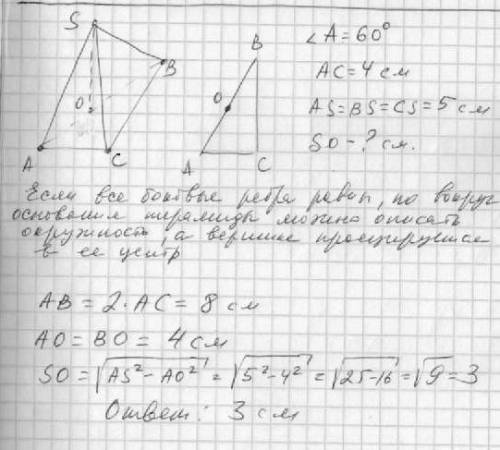 S
B
O
A
C
B
O
A
C
∠A = 60°
AC = 4 см
AS = BS = CS = 5 см
SO - ? см.
Если все боковые ребра равны, то вокруг
основания пирамиды можно описать
окружность, а вершина проецируется
в ее центр
AB = 2·AC = 8 см
AO = BO = 4 см
SO = √AS² - AO² = √5² - 4² = √25-16 = √9 = 3
Ответ: 3 см